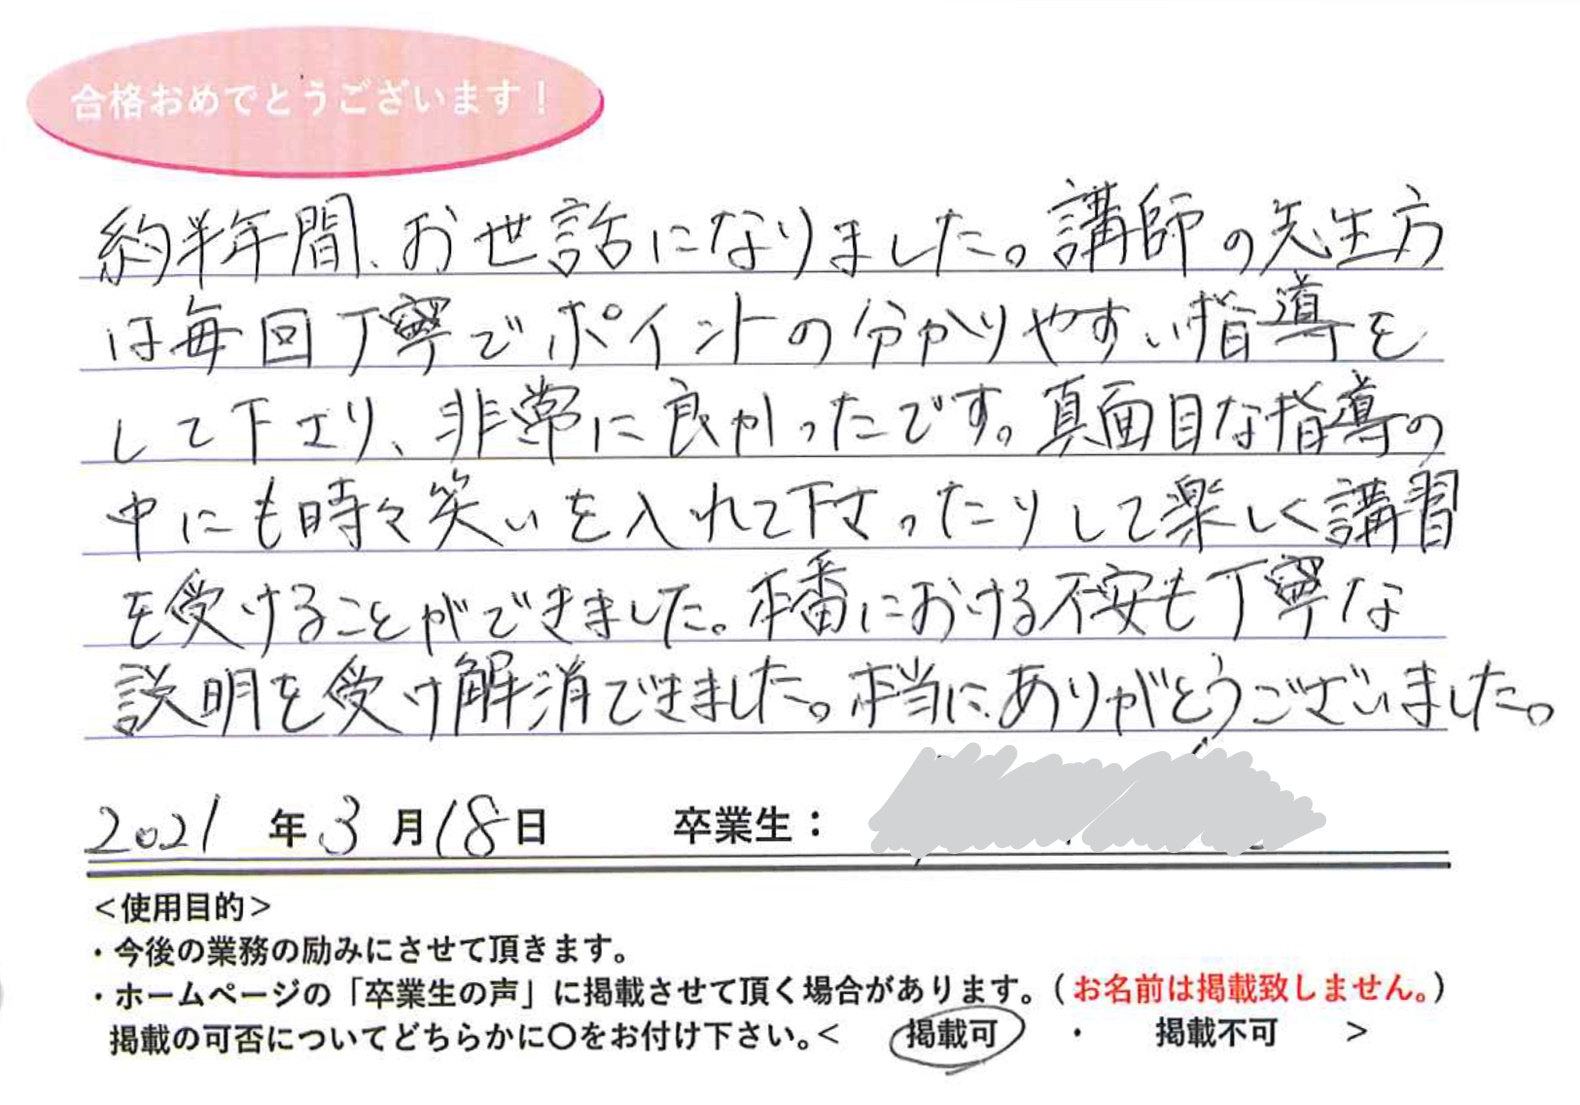 合格おめでとうございます！
約半年間、お世話になりました。講師の先生方
は毎回丁寧でポイントの分かりやすい指導を
して下さり、非常に良かったです。真面目な指導の
中にも時々笑いを入れて下さったりして楽しく講習
を受けることができました。本番における不安も丁寧な
説明を受け解消できました。本当にありがとうございました。
2021年3月18日 卒業生：
＜使用目的＞
・今後の業務の励みにさせて頂きます。
・ホームページの「卒業生の声」に掲載させて頂く場合があります。（お名前は掲載致しません。）
掲載の可否についてどちらかに〇をお付け下さい。＜ 掲載可 ・ 掲載不可 ＞